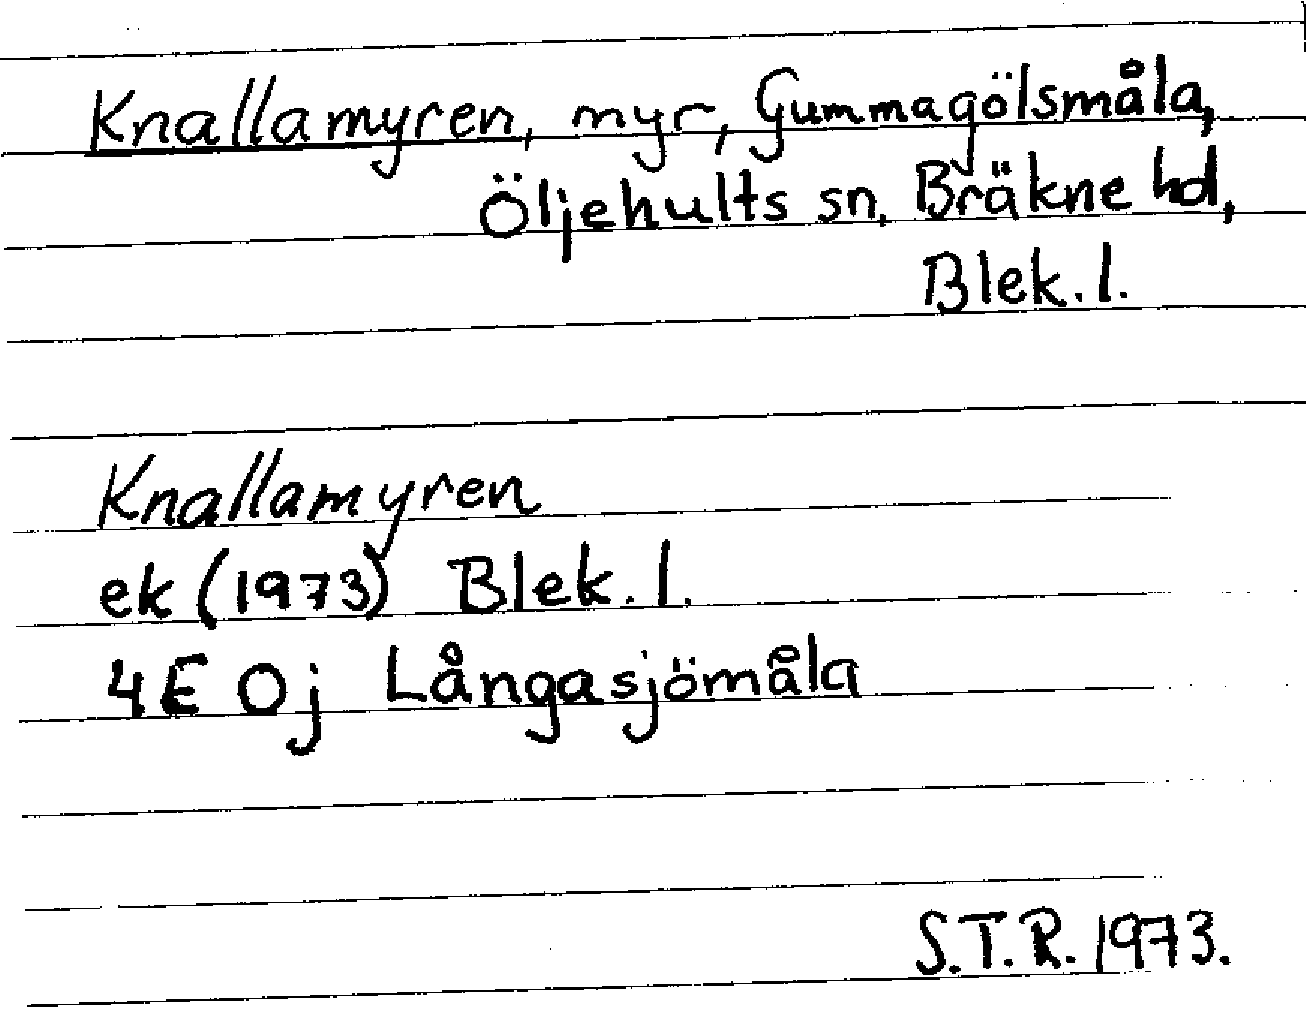 Knallamyren, myr, Gummagölsmåla,
Öljehults sn, Bräkne hd,
Blek. l.
Knallamyren
ek (1973) Blek. l.
4E 0j Långasjömåla
S.T.R. 1973.